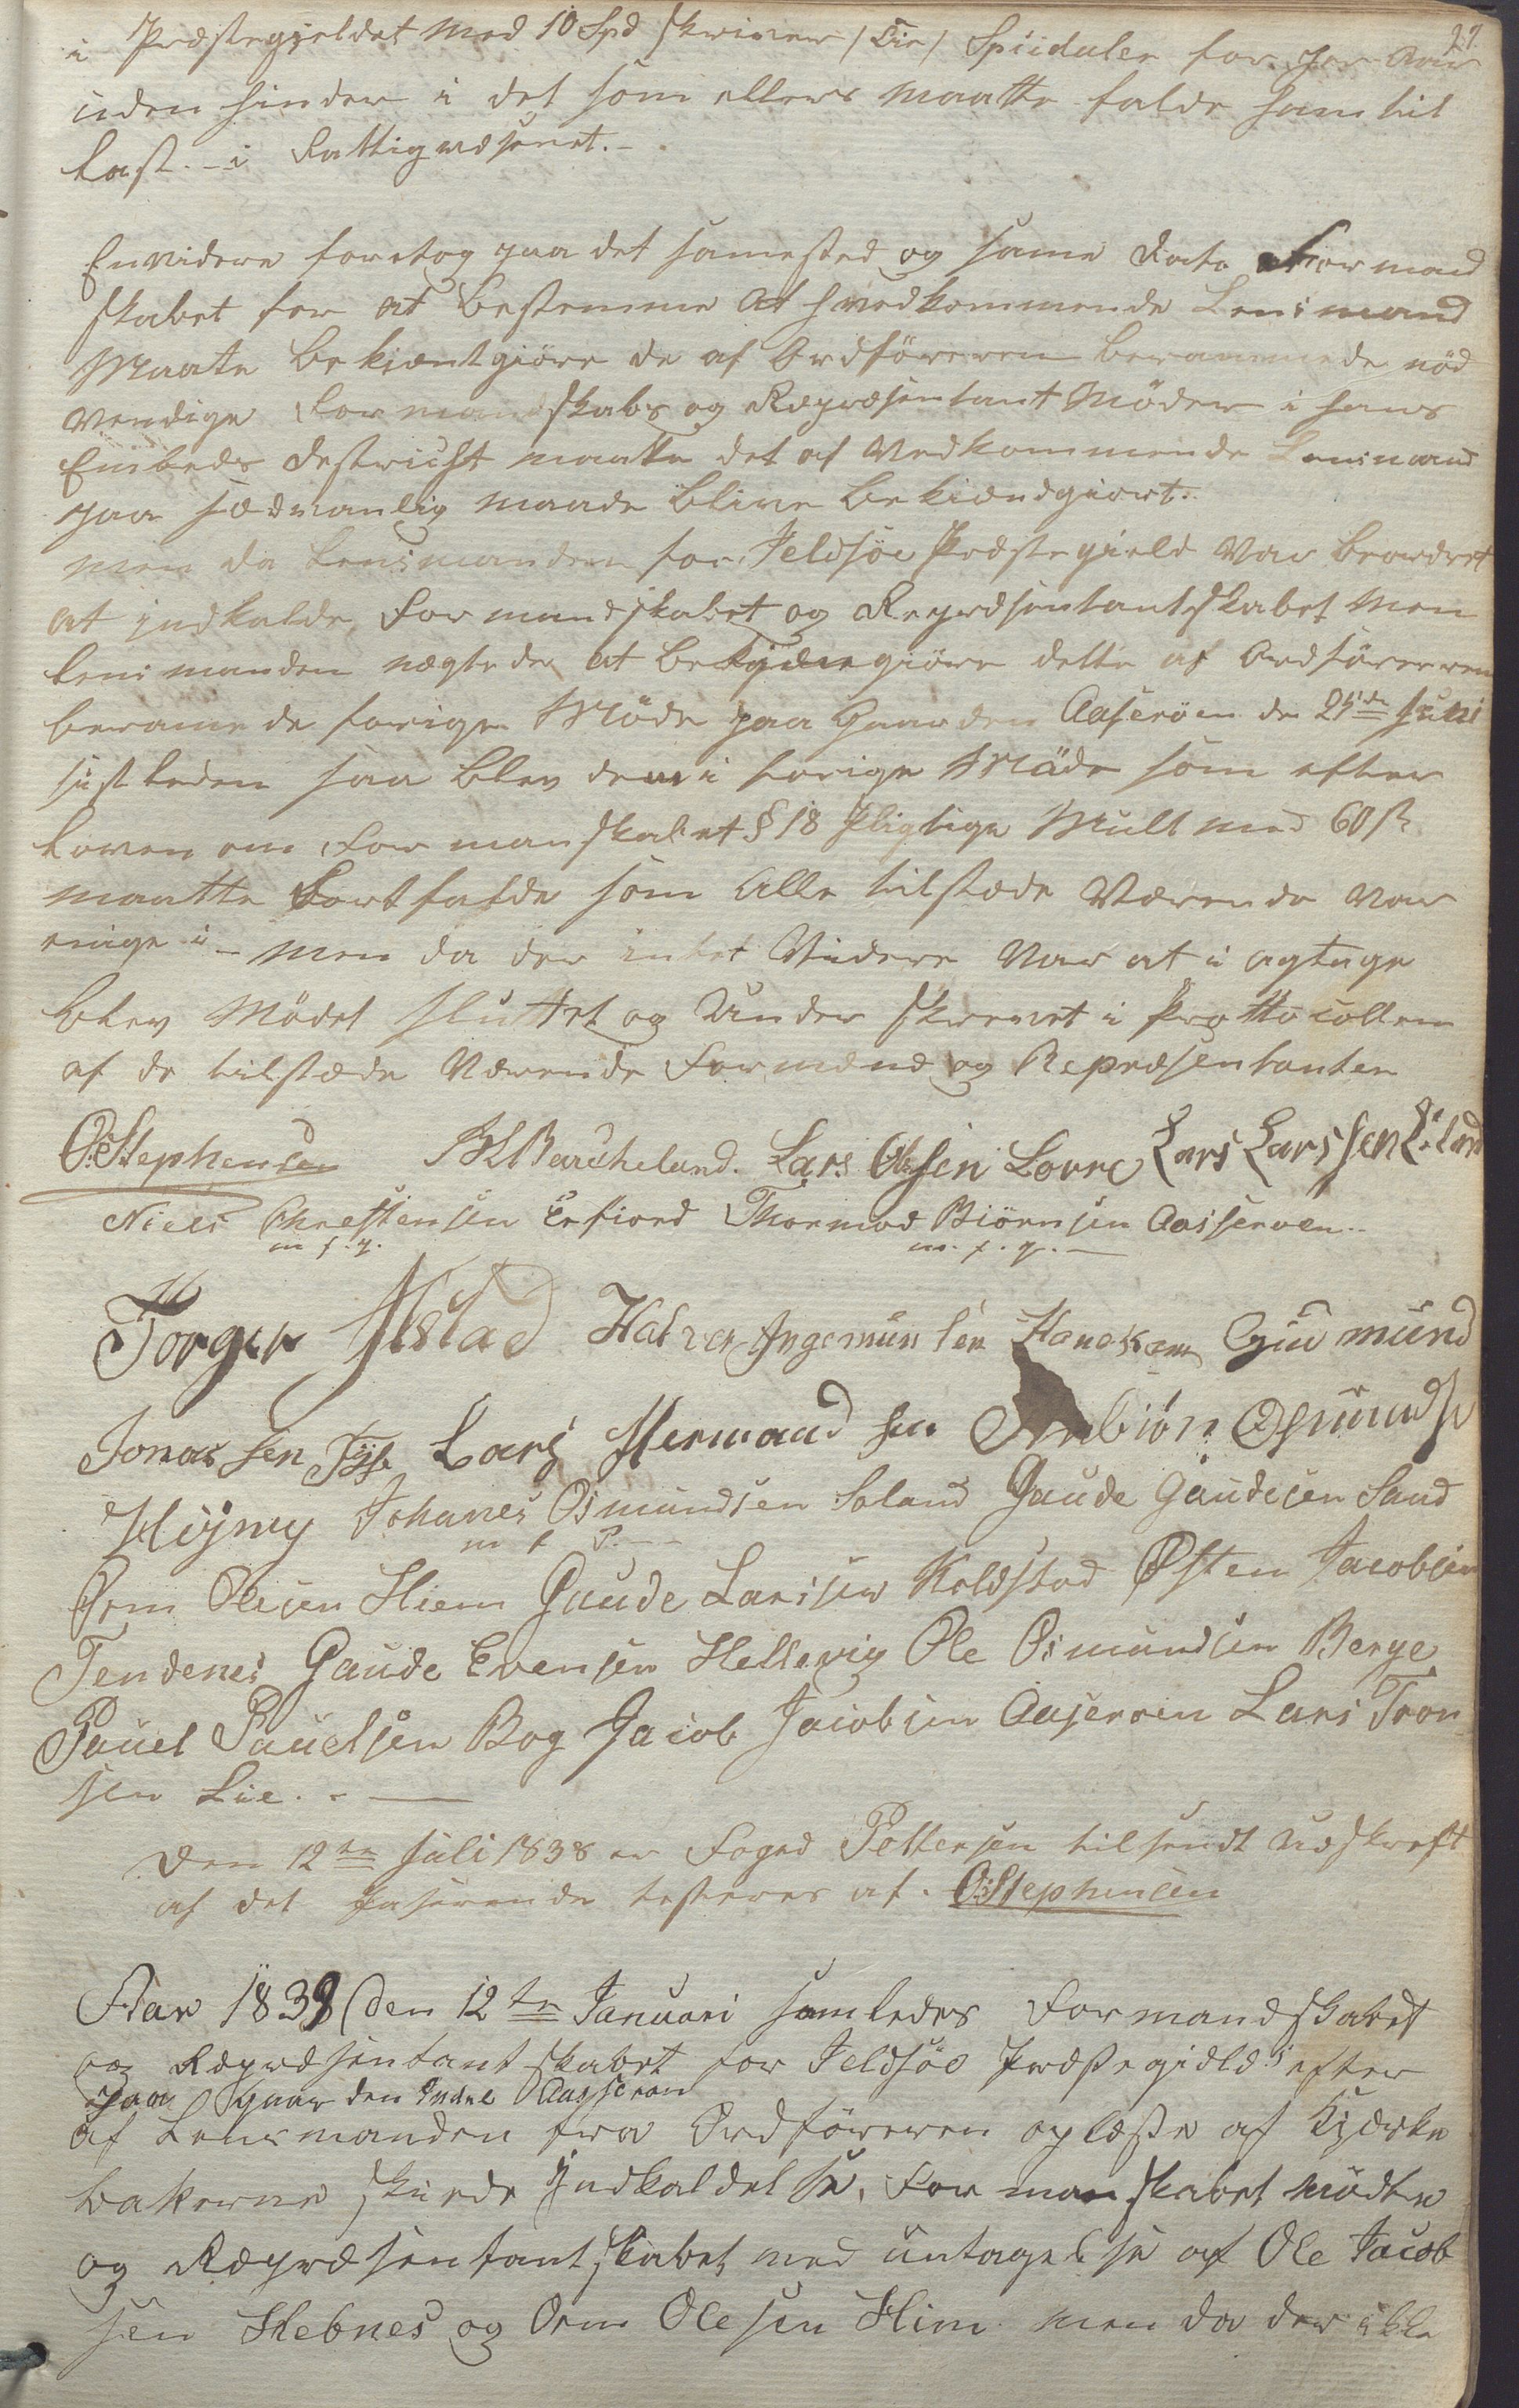 27.
i Præstegjeldet med 10 Spd skriver /Tie/ Spiidaler for hver Aar
uden hinder i det som ellers maatte falde ham til
Last. - i Fattigvæsenet. -
Envidere foretog paa det samested og same Dato Formand
skabet for at bestemme at hvedkommende Lensmand
Maate bekiæntgiöre de af Ordföreren beramede nöd
vendige Formandskabs og Repræsentant Möder i hans
Embeds Destricht maatte det af Vedkommende Lensmand
paa sædvanlig maade blive bekiændgiort.
men da Lensmanden for Jeldsöe Præstegield var beordret
at indkalde Formandskabet og Repræsentantskabet men
lensmanden nægtede at bekjænegiöre dette af Ordföreren
beramede forige Möde paa Gaarden Aaseröen de 25de Juni
sistleden saa blev dem i forige Möde som efter
loven om Formanskabet § 18 Pligtige Mult med 60 s
maatte Bortfalde som Alle tilstæde Værende var
enige i - men da der intet Videre var at iagtage
blev Mödet sluttet og Underskrevet i Prottocollen
af de tilstæde Værende Formænd og Repræsentanter
O. Stephensen Lars Olsen Lovre Lars Larssen Eiland
Niels Chrestensen Erfiord Thormod Biörnsen Aaseroen
m. f. p. m. f. p.
Torger Halvor Ingemunsen Gudmund
Jonassen Lars Hermand sen Anbiörn Osmunds
Johanes Osmundsen Soland Gaude Gaudesen Sand
m f P.
Orm Olesen Hiem Gaude Larssen Kolbstad Østen Jacobsen
Tendenes Gaude Evensen Hellevig Ole Osmundsen Berge
Pauel Pauelsen Bog Jacob Jacobsen Aaseroen Lars Tron
sen Lie. -
Den 12te Juli 1838 er Foged Pettersen tilsendt Udskreft
af det Paserende testeres af. O. Stephensen
Aar 1839 den 12te Januari samledes Formandskabet
og Repræsentantskabet for Jeldsöe Præstegield efter
paa Gaarden Indre Aaseroen
af Lensmanden fra Ordföreren oplæste af Kjærke
bakerne skeede Indkaldelse, Formanskabet mödte
og Repræsentantskabet med untagelse af Ole Jacob
sen Hebnes og Orm Olesen Him men da der ikke